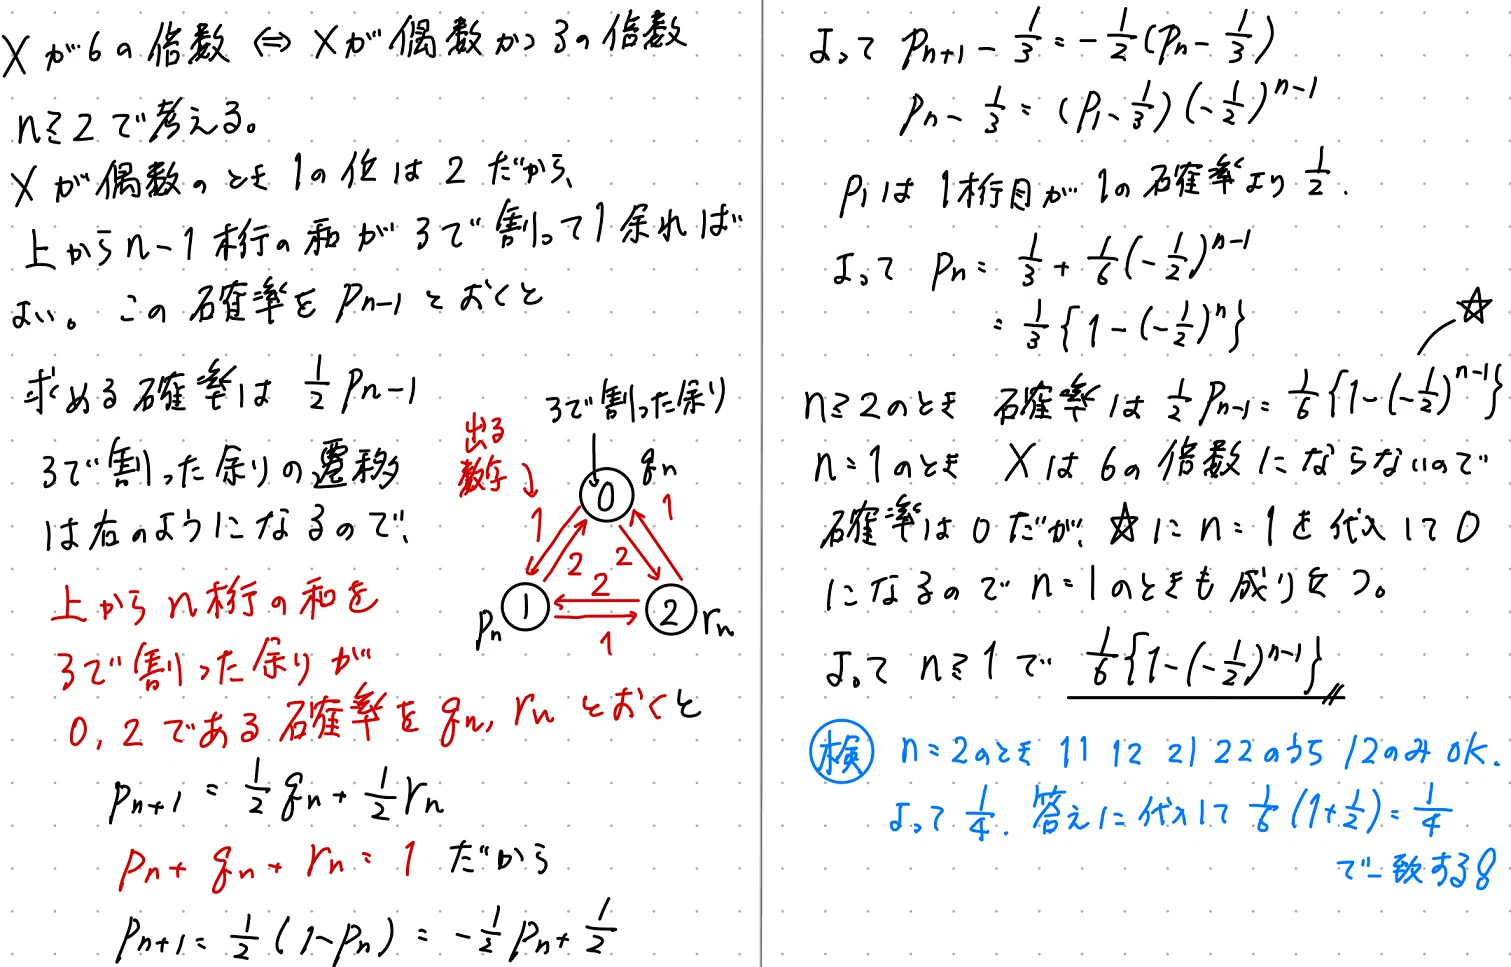 Xが6の倍数 ⇔ Xが偶数かつ3の倍数
n≧2で考える。
Xが偶数のとき1の位は2だから、
上からn-1桁の和が3で割って1余れば
よい。この確率をp_{n-1}とおくと
求める確率は 1/2 p_{n-1}
3で割った余りの遷移
は右のようになるので、
3で割った余り
出る
数字
q_n
0
1
1
2
2
2
p_n
1
2
r_n
1
上からn桁の和を
3で割った余りが
0, 2である確率をq_n, r_nとおくと
p_{n+1} = 1/2 q_n + 1/2 r_n
p_n + q_n + r_n = 1 だから
p_{n+1} = 1/2 (1-p_n) = -1/2 p_n + 1/2
よって p_{n+1} - 1/3 = -1/2 (p_n - 1/3)
p_n - 1/3 = (p_1 - 1/3)(-1/2)^{n-1}
p_1は1桁目が1の確率より 1/2.
よって p_n = 1/3 + 1/6 (-1/2)^{n-1}
= 1/3 {1-(-1/2)^n}
☆
n≧2のとき 確率は 1/2 p_{n-1} = 1/6 {1-(-1/2)^{n-1}}
n=1のとき Xは6の倍数にならないので
確率は0だが、☆にn=1を代入して0
になるのでn=1のときも成り立つ。
よって n≧1で 1/6 {1-(-1/2)^{n-1}}
検 n=2のとき 11 12 21 22のうち12のみOK.
よって 1/4. 答えに代入して 1/6 (1+1/2) = 1/4
で一致する。